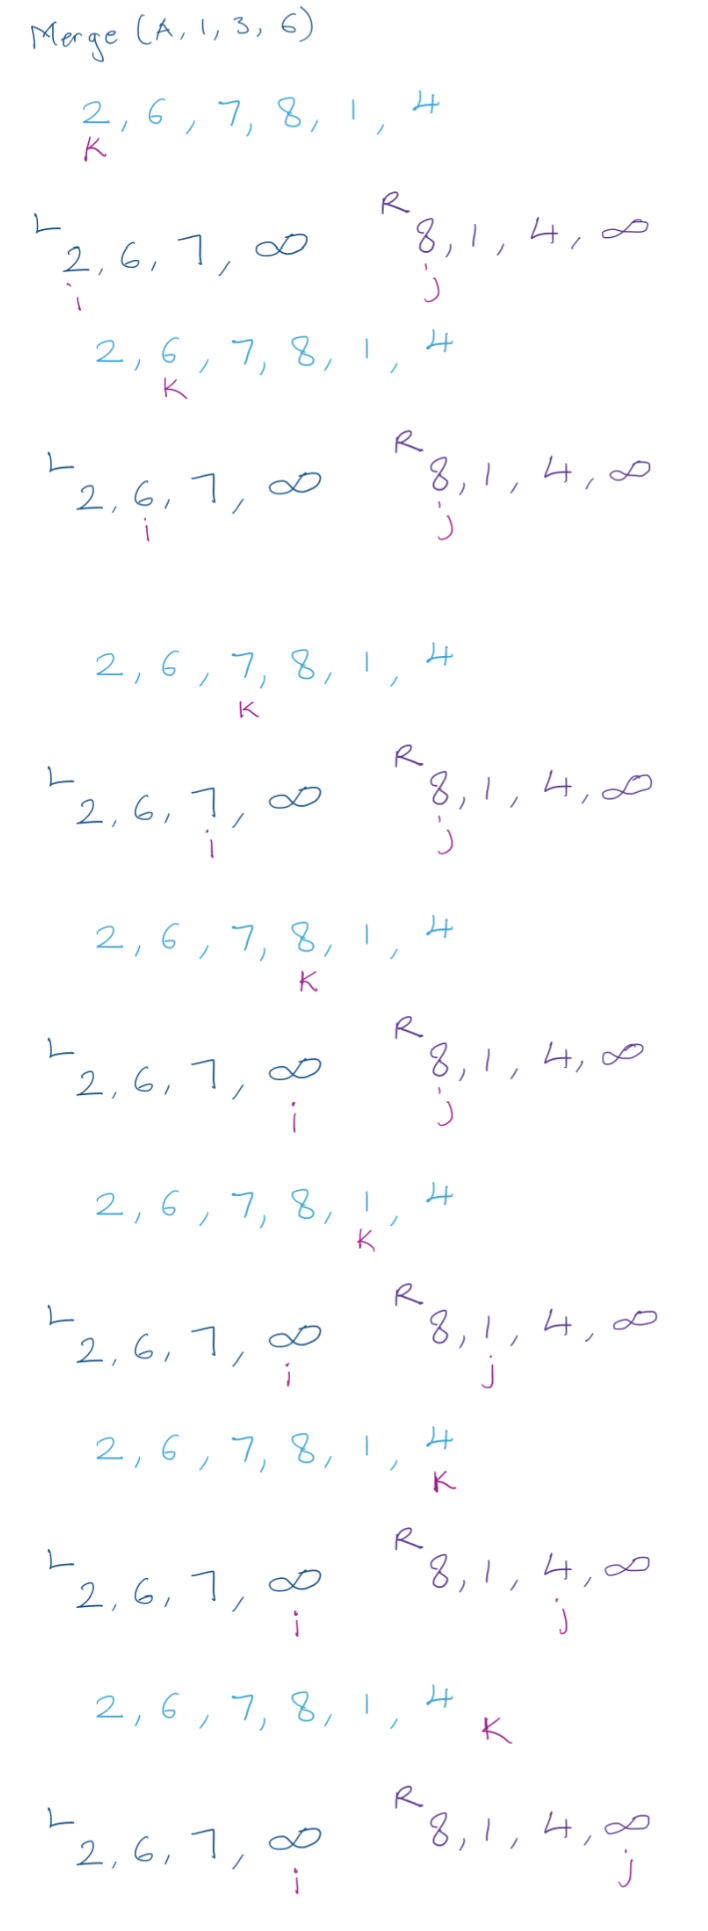 Merge (A, 1, 3, 6)
2, 6, 7, 8, 1, 4
K
L 2, 6, 7, ∞ R 8, 1, 4, ∞
i j
2, 6, 7, 8, 1, 4
K
L 2, 6, 7, ∞ R 8, 1, 4, ∞
i j
2, 6, 7, 8, 1, 4
K
L 2, 6, 7, ∞ R 8, 1, 4, ∞
i j
2, 6, 7, 8, 1, 4
K
L 2, 6, 7, ∞ R 8, 1, 4, ∞
i j
2, 6, 7, 8, 1, 4
K
L 2, 6, 7, ∞ R 8, 1, 4, ∞
i j
2, 6, 7, 8, 1, 4
K
L 2, 6, 7, ∞ R 8, 1, 4, ∞
i j
2, 6, 7, 8, 1, 4
K
L 2, 6, 7, ∞ R 8, 1, 4, ∞
i j